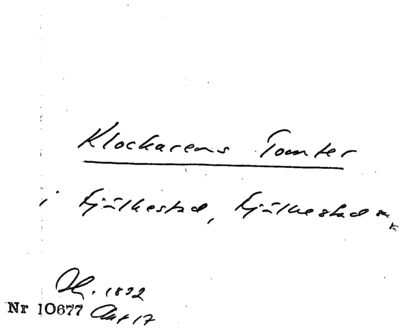 Klockarens Tomter
i Fjälkestad, Fjälkestad sn
1892
Nr 10677 Akt 17